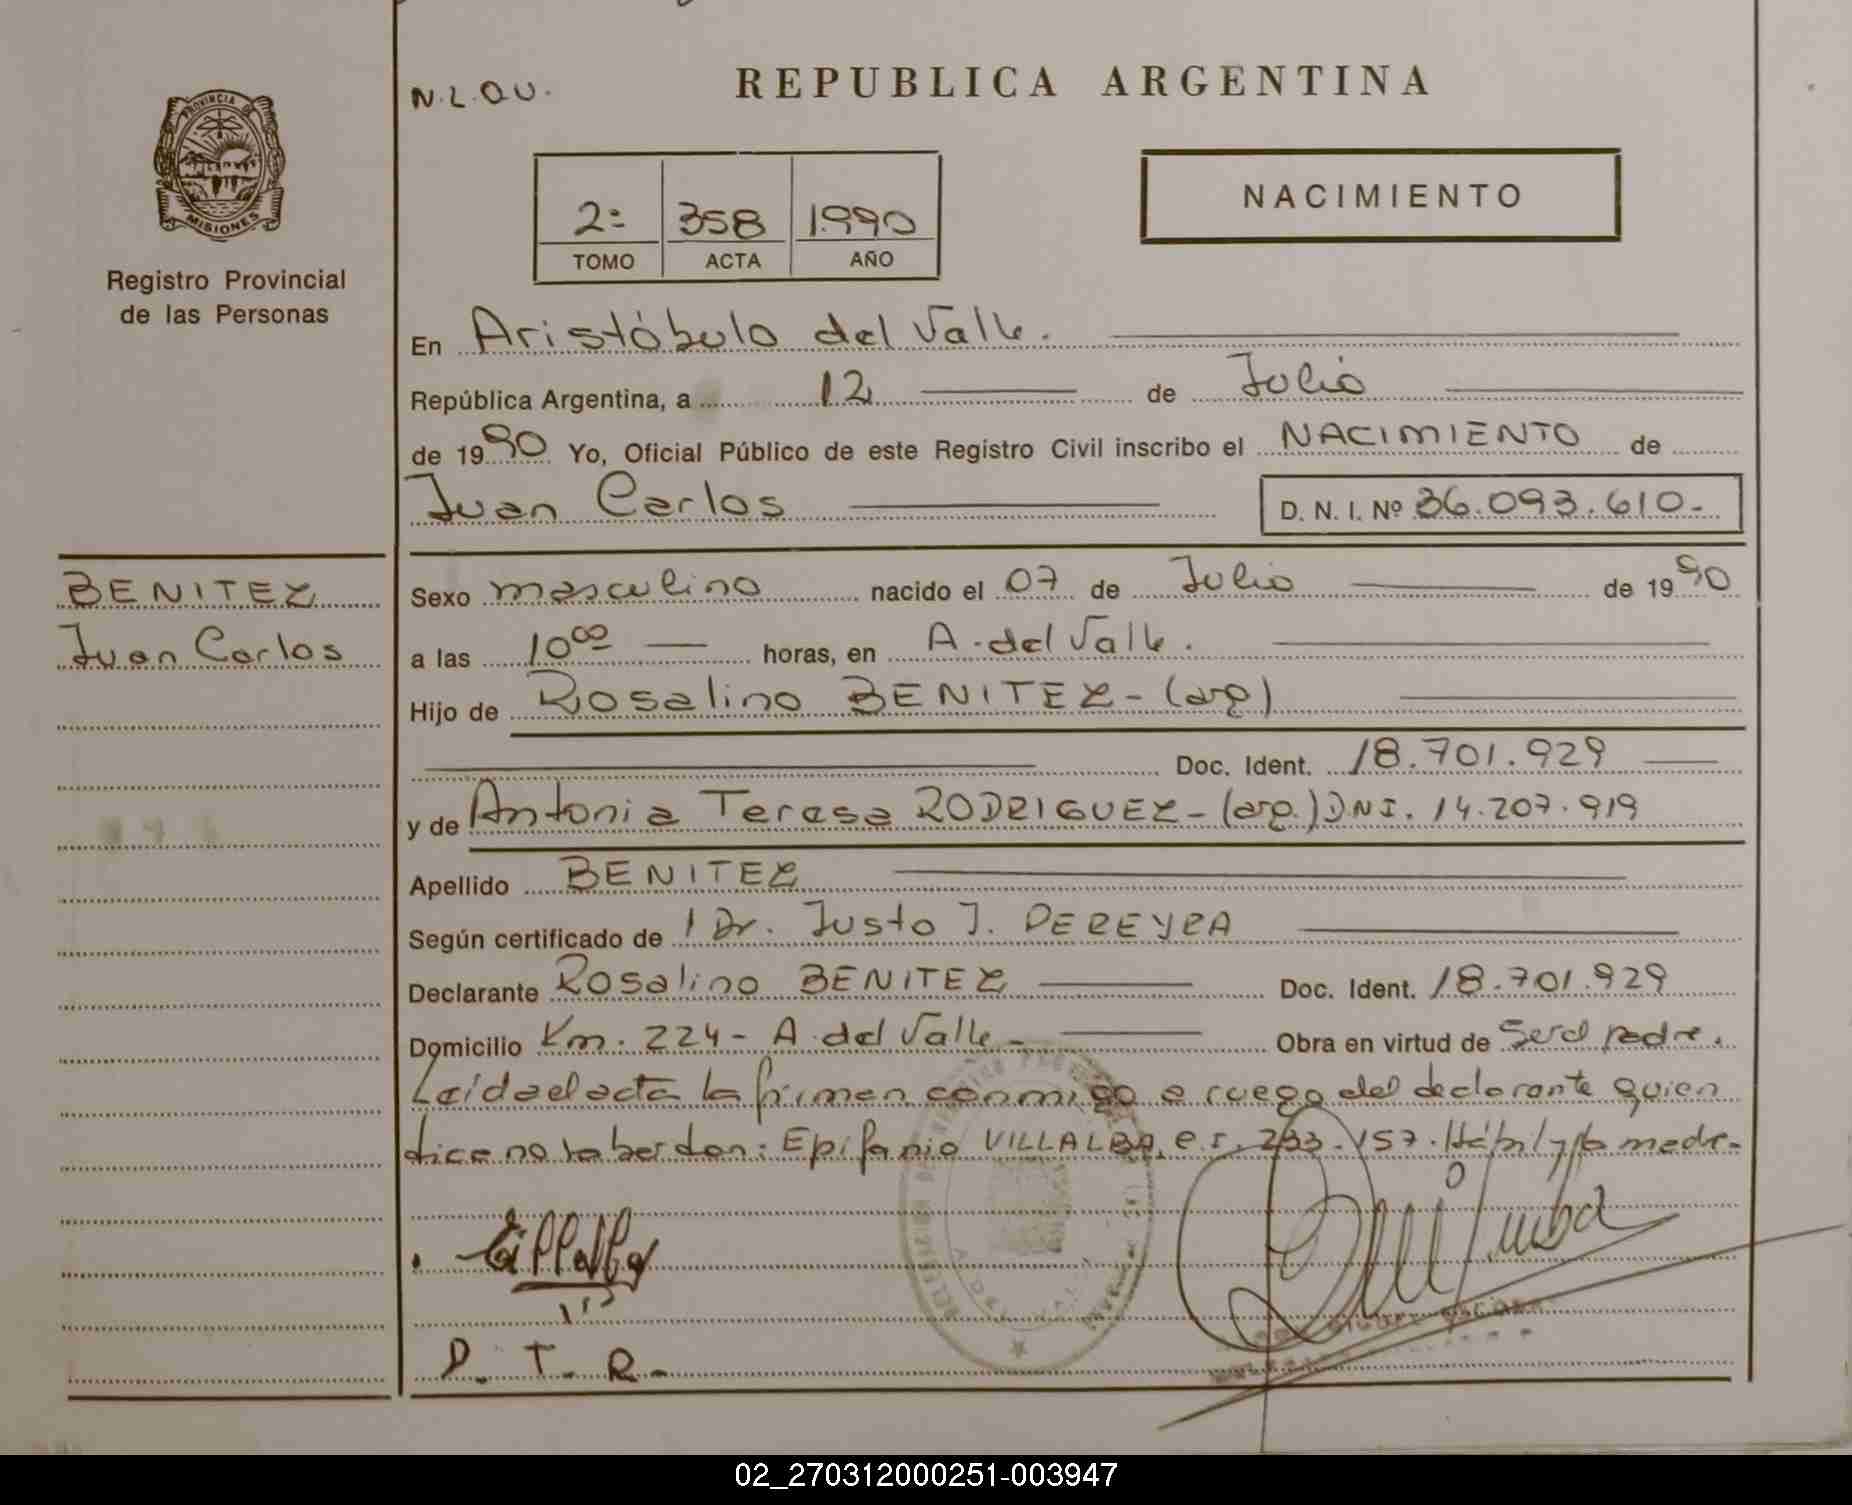 PROVINCIA DE
MISIONES
Registro Provincial
de las Personas
BENITEZ
Juan Carlos
N.L.QU.
REPUBLICA ARGENTINA
2º 358 1990
TOMO ACTA AÑO
NACIMIENTO
En Aristóbulo del Valle.
República Argentina, a 12 de Julio
de 1990 Yo, Oficial Público de este Registro Civil inscribo el NACIMIENTO de
Juan Carlos D. N. I. Nº 36.093.610.-
Sexo masculino nacido el 07 de Julio de 1990
a las 10⁰⁰ horas, en A. del Valle.
Hijo de Rosalino BENITEZ - (arg)
Doc. Ident. 18.701.929
y de Antonia Teresa RODRIGUEZ - (arg.) DNI. 14.207.919
Apellido BENITEZ
Según certificado de Dr. Justo J. PEREYRA
Declarante Rosalino BENITEZ Doc. Ident. 18.701.929
Domicilio Km. 224 - A. del Valle - Obra en virtud de Ser el padre.
Leída el acta la firman conmigo a ruego del declarante quien
dice no saber don: Epifanio VILLALBA, C.I. 233.157. Hábil y la madre-
Villalba
P. T. R-
02_270312000251-003947